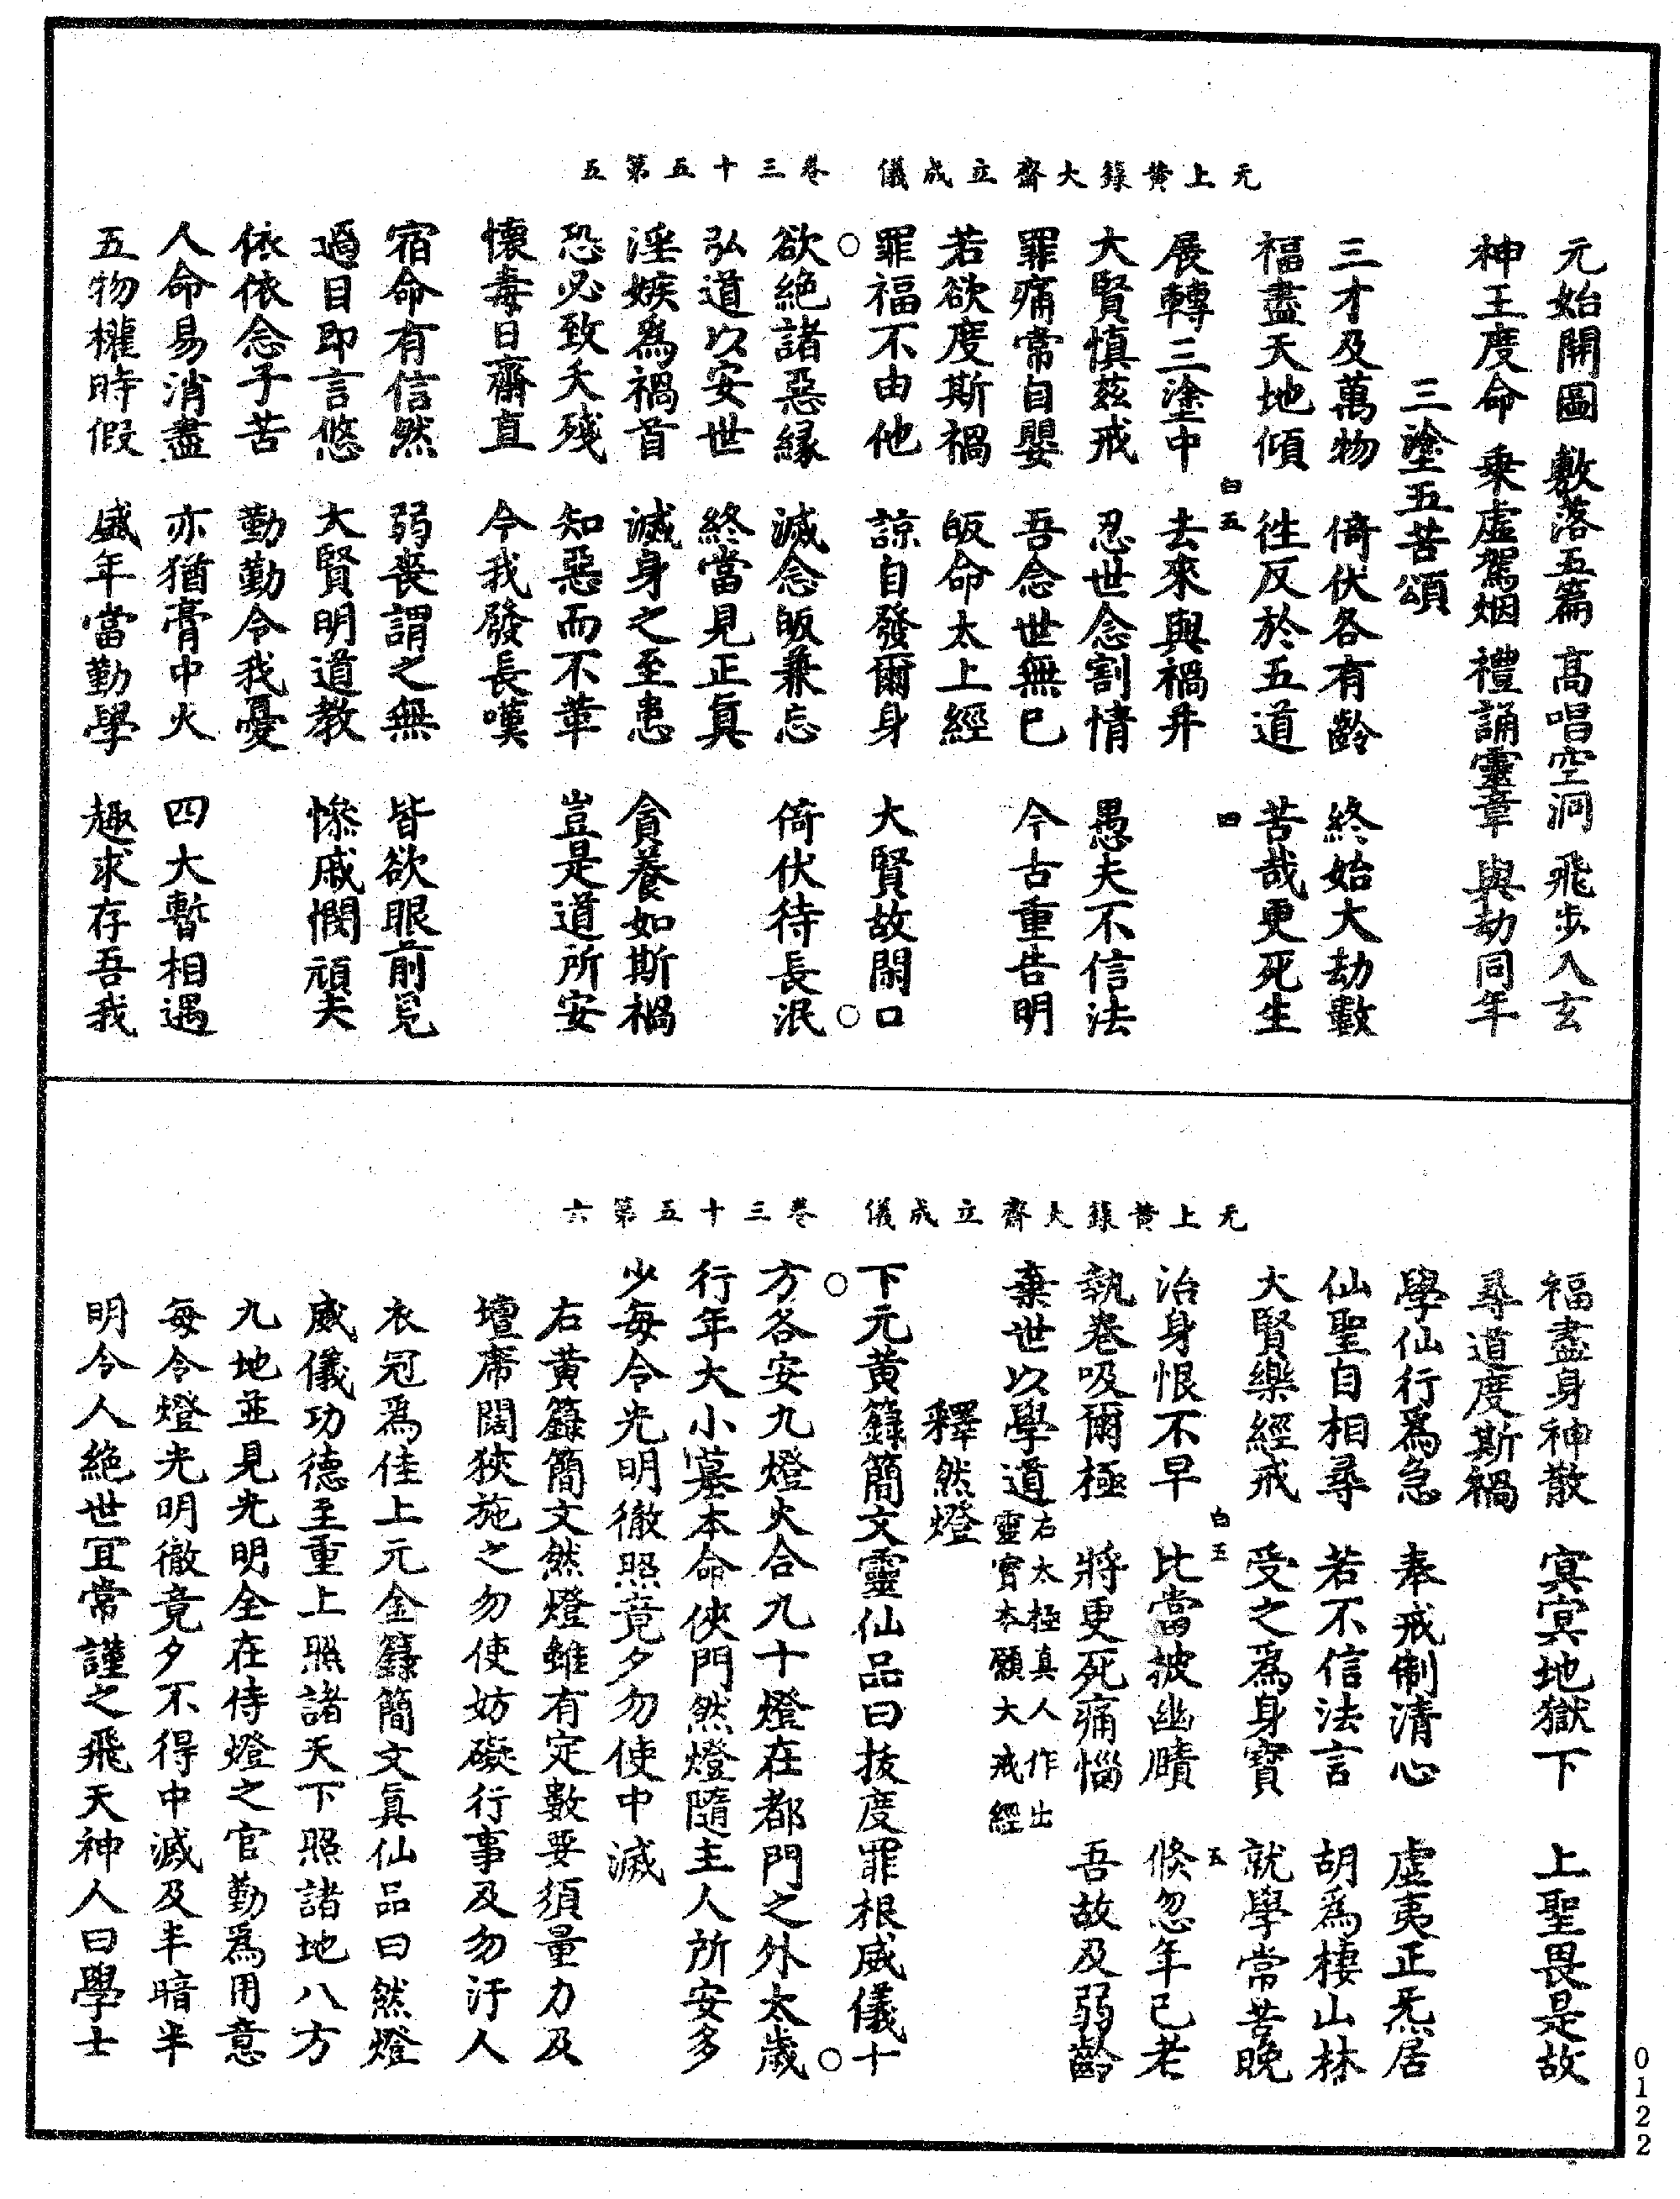 元上黄籙大齋立成儀　卷三十五第五
元始開圖　敷落五篇　高唱空洞　飛步入玄
神王度命　乗虛駕烟　禮誦靈章　與劫同年
三塗五苦頌
三才及萬物　倚伏各有齡　終始大劫數
福盡天地傾　往反於五道　苦哉更死生
白五　四
展轉三塗中　去來與禍并
大賢慎兹戒　忍世念割情　愚夫不信法
罪痛常自嬰　吾念世無已　今古重告明
若欲度斯禍　皈命太上經
罪福不由他　諒自發爾身　大賢故閉口
欲絶諸惡縁　滅念皈兼忘　倚伏待長泯
弘道以安世　終當見正眞
淫嫉爲禍首　滅身之至患　貪養如斯禍
恐必致夭殘　知惡而不革　豈是道所安
懷毒日齋直　今我發長嘆
宿命有信然　弱喪謂之無　皆欲眼前覓
過目即言悠　大賢明道教　慘戚憫頑夫
依依念子苦　勤勤令我憂
人命易消盡　亦猶膏中火　四大暫相遇
五物權時假　盛年當勤學　趣求存吾我
元上黄籙大齋立成儀　卷三十五第六
福盡身神散　冥冥地獄下　上聖畏是故
尋道度斯禍
學仙行爲急　奉戒制清心　虛夷正炁居
仙聖自相尋　若不信法言　胡爲棲山林
大賢樂經戒　受之爲身寶　就學常苦晚
白五　五
治身恨不早　比當披幽賾　倐忽年已老
執卷吸爾極　將更死痛惱　吾故及弱齡
棄世以學道右太極真人作出靈寶本願大戒經
釋然燈
下元黄籙簡文靈仙品曰拔度罪根威儀十
方各安九燈火合九十燈在都門之外太歲
行年大小墓本命俠門然燈隨主人所安多
少每令光明徹照竟夕勿使中滅
右黄籙簡文然燈雖有定數要須量力及
壇席闊狹施之勿使妨礙行事及勿汙人
衣冠爲佳上元金籙簡文眞仙品曰然燈
威儀功德至重上照諸天下照諸地八方
九地並見光明全在侍燈之官勤爲用意
每令燈光明徹竟夕不得中滅及半暗半
明令人絶世冝常謹之飛天神人曰學士
0122